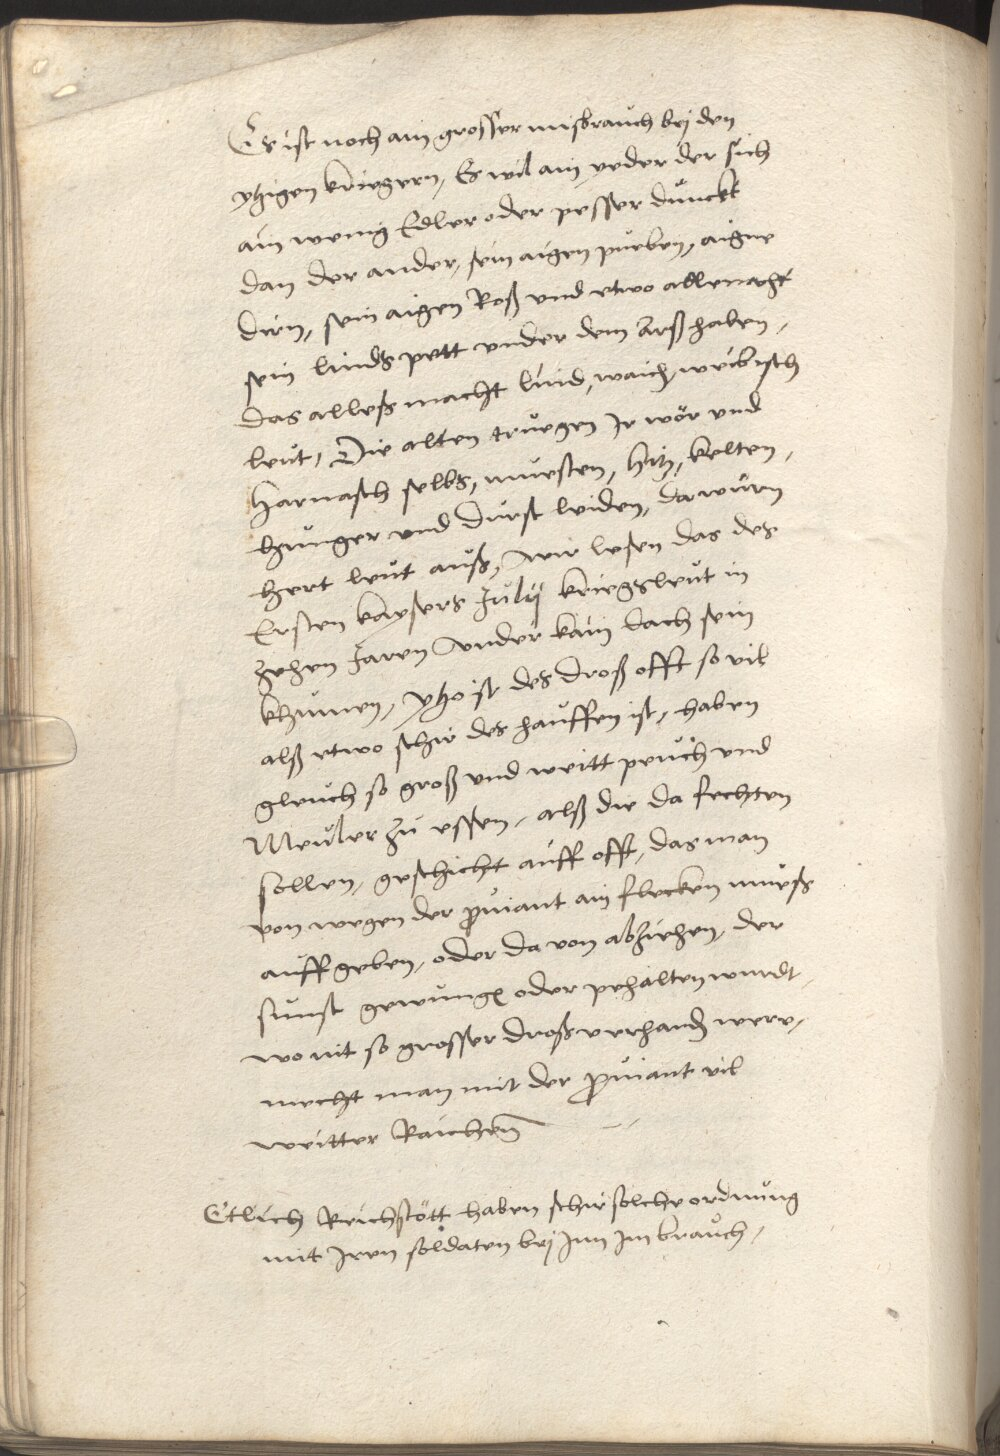 Es ist noch ain grosser misbrauch bej den
yhigen kriegern, Es wil ain yeder der sich
ain wenig Edler oder pesser dunckt
dan der ander, sein aigen pueben, aigne
dirn, sein aigen Roß vnd etwo allenacht
sein linds pett vnder dem Arß haben,
das alles macht lind, waich, weibisch
leut, Die alten truegen Ir wör vnd
Harnasch selbs, muesten, hitz, kelten,
hunger vnd durst leiden, da wurn
hert leut auß, Wir lesen das des
Ersten kaysers Julij kriegsleut in
zehen Jaren vnder kain dach sein
khumen, yho ist des droß offt so vil
alß etwo schir des hauffen ist, haben
gleich so groß vnd weitt peuch vnd
Meuler zu essen, alß die da fechten
sollen, geschicht auff offt, das man
von wegen der profiant ain flecken mueß
auffgeben, oder da von abziehen, der
sunst gewungen oder pehalten wurdt,
wo nit so grosser droß verhand were,
mecht man mit der profiant vil
weitter Raichen
Etlich Reichstött haben schir solche ordnung
mit Iren soldaten bej Inn Im brauch,